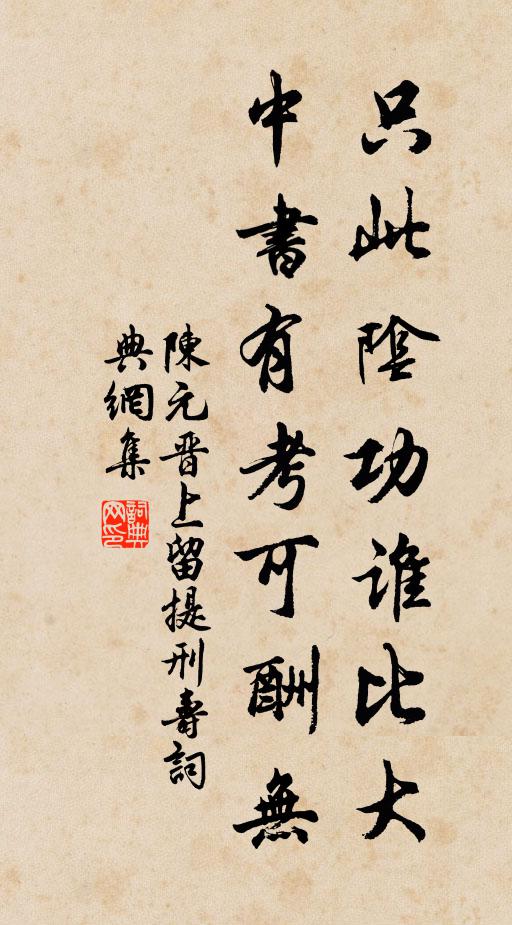 只此陰功誰比大
中書有考可酬無
陳元晋上留提刑壽詞
典網集
詞典网印